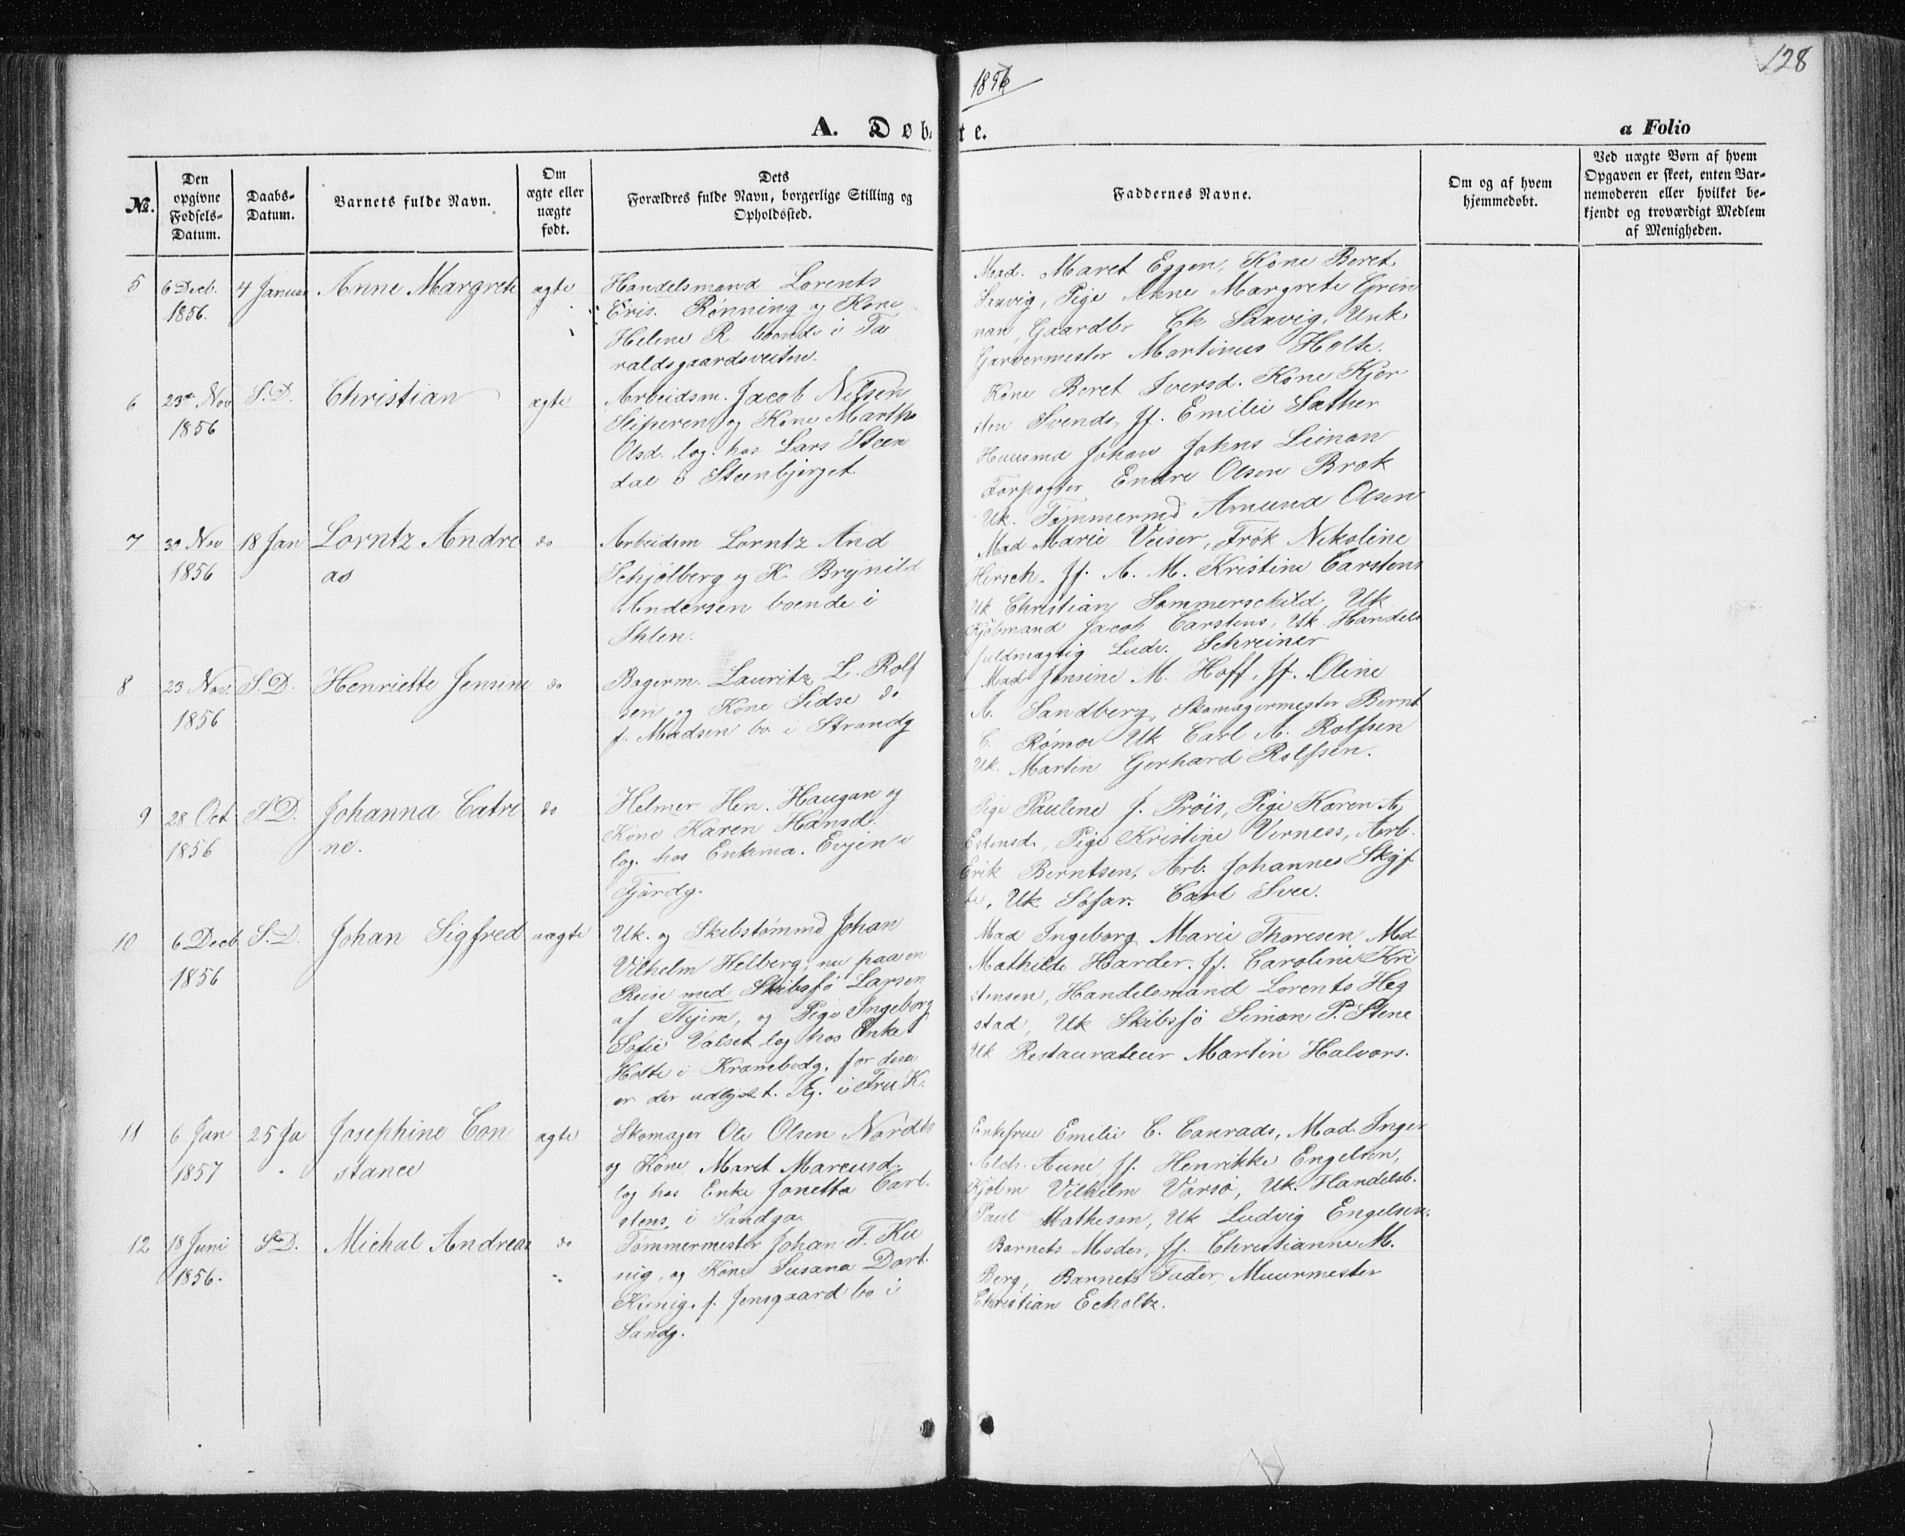 128
1856
A. Døbte.
a Folio
№.
Den opgivne Fødsels-Datum.
Daabs-Datum.
Barnets fulde Navn.
Om ægte eller uægte født.
Dets Forældres fulde Navn, borgerlige Stilling og Opholdssted.
Faddernes Navne.
Om og af hvem hjemmedøbt.
Ved uægte Børn af hvem Opgaven er skeet, enten Barnemoderen eller hvilket bekjendt og troværdigt Medlem af Menigheden.
5
6 Decb.
1856.
4 Januar
Anne Margrete
ægte
Handelsmand Lorents
Eris. Rønning og Kone
Helene R. boende i Ta
raldsgaardsveiten.
Mad. Maret Eggen, Kone Beret
Saxvig, Pige Anne Margrete Grin
nan, Gaardbr Ch Saxvig, Unk
Garvermester Martinus Holte.
6
23de Nov
1856
S.D.
Christian
ægte
Arbeidsm. Jacob Nilsen
Sliperen og Kone Martha
Olsd. log. hos Lars Steen
dal i Steenbjerget
Kone Beret Iversd. Kone Kjer
sten Svends. Jf. Emilie Sather
Huusmd Johan Johns Liman
Forpagter Endre Olsen Brøk
Uk. Tømmermd Amund Olsen
7
30 Nov
1856
18 Jan
Lorntz Andre
as
do
Arbeidsm Lorntz And
Schjølberg og K. Brynild
Andersen boende i
Ihlen.
Mad Marie Veiser, Frøk Nikoline
Hersch. Jf. A. M. Kristine Carstens
Uk Christian Sommerschild, Uk
Kjøbmand Jacob Carstens, Uk Handels
fuldmægtig Ludv. Schreiner
8
23 Nov.
1856
S.D.
Henriette Jensine
do
Bagerm. Lauritz L. Rolf
sen og Kone Sidse do
f. Madsen bo. i Strandg
Mad Jensine M. Hoff. Jf. Oline
A. Sandberg, Skomagermester Bernt
C. Rømoe Uk Carl A. Rolfsen
Uk. Martin Gerhard Rolfsen.
9
28 Oct
1856
S.D.
Johanna Catri
ne.
do
Helmer Hen. Haugan og
Kone Karen Hansd.
log. hos Enkma. Evjen i
Fjordg.
Pige Pauline J. Prøis, Pige Karen A,
Estensd, Pige Kristine Verness, Arb.
Erik Berntsen, Arb. Johannes Skjf
te, Uk Søfar. Carl Svee.
10
6 Decb
1856
S.D.
Johan Sigfred
uægte
Uk. og Skibstømmd Johan
Vilhelm Helberg, nu paa en
Reise med Skibsfø Larsen
af Thjem, og Pige Ingeborg
Sofie Valset log hos Enke
Holte i Kranebodg, for dem
er der udlyst t. Æg. i Frue K.
Mad Ingeborg Marie Thoresen Md.
Mathilde Harder. Jf. Caroline Kri
stensen, Handelsmand Lorents Heg
stad, Uk Skibsfø Simon P. Stene
Uk Restaurateur Martin Halvors.
11
6 Jan
1857
25 Ja
Josephine Con
stance
ægte
Skomager Ole Olsen Nordbs
og Kone Maret Marcusd.
log hos Enke Jonetta Carl
stens, i Sandga.
Enkefrue Emilie C. Conrads, Mad. Inge
Alch. Aune Jf. Henrikke Engelsen,
Kjøbm Vilhelm Varsø, Uk. Handelsb.
Paul Mathesan, Uk Ludvig Engelsen.
12
18 Juni
1856.
S.D.
Michal Andreas
do
Tømmermester Johan F. Kü
nig, og Kone Susana Dort.
Künig. f. Jensgaard bo i
Sandg.
Barnets Moder, Jf. Christianne M.
Berg, Barnets Fader, Muurmester
Christian Echoltz.